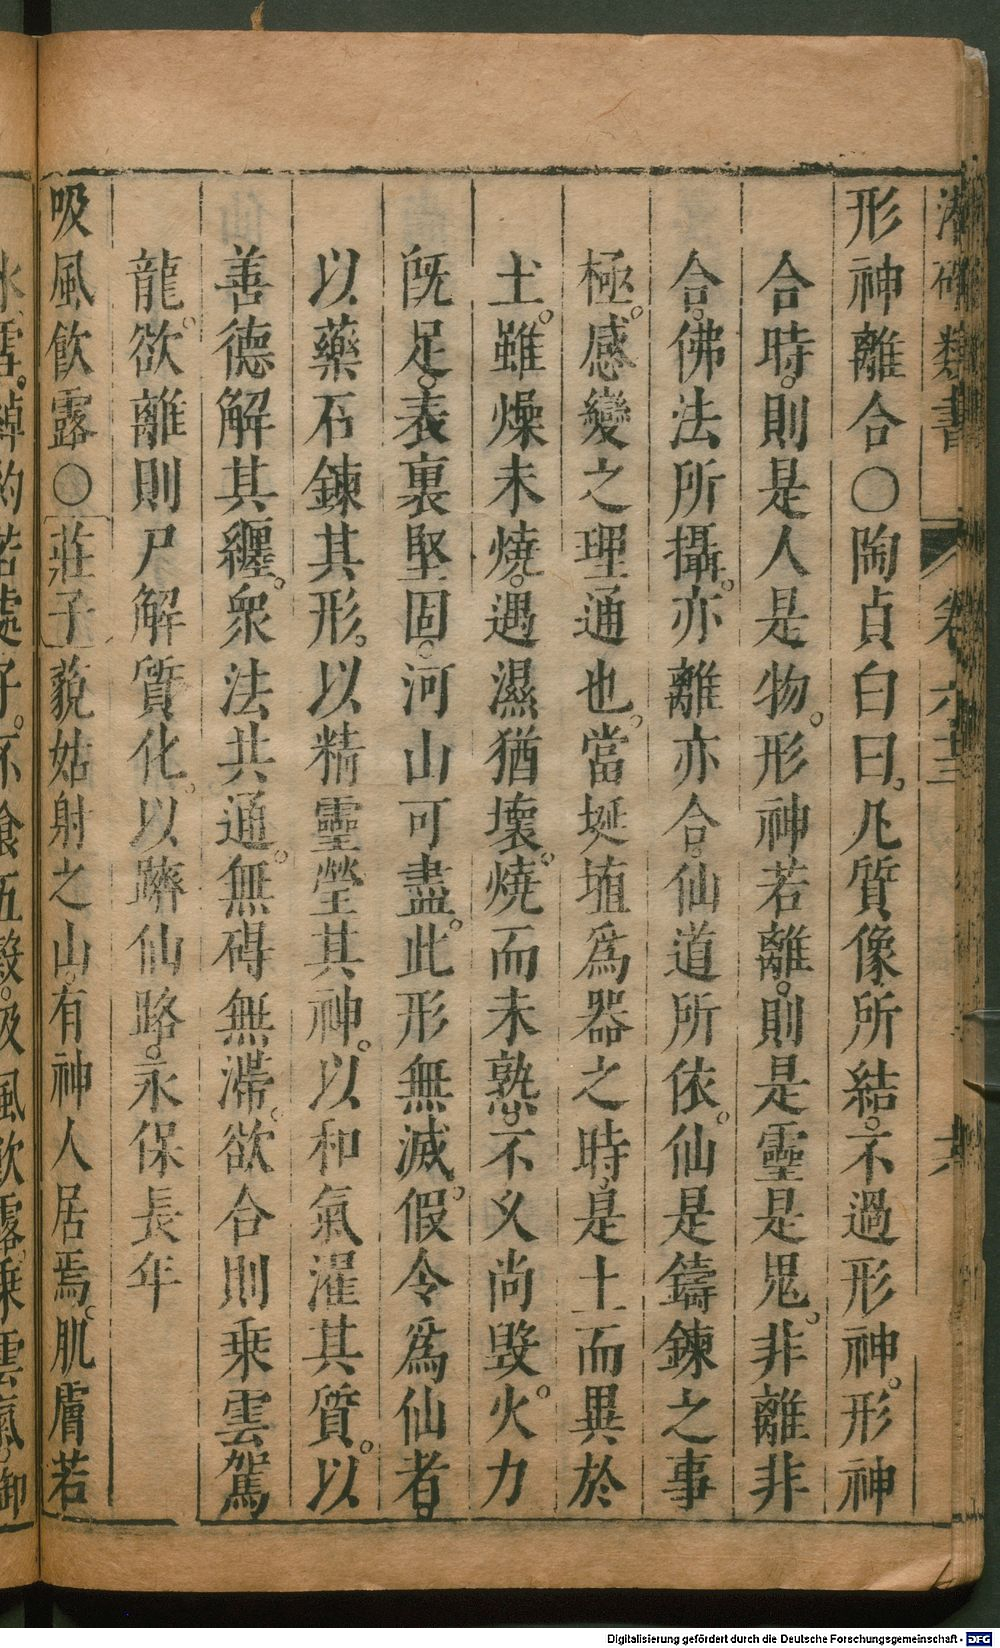 類書 卷六十三
形神離合○陶貞白曰凡質像所結不過形神形神
合時則是人是物形神若離則是靈是鬼非離非
合佛法所攝亦離亦合仙道所依仙是鑄鍊之事
極感變之理通也當埏埴爲器之時是土而異於
土雖燥未燒遇濕猶壞燒而未熟不久尚毀火力
旣足表裏堅固河山可盡此形無滅假令爲仙者
以藥石鍊其形以精靈瑩其神以和氣濯其質以
善德解其纏衆法共通無碍無滯欲合則乗雲駕
龍欲離則尸解質化以躋仙路永保長年
吸風飲露○莊子藐姑射之山有神人居焉肌膚若
冰雪綽約若處子不飧五穀吸風飲露乗雲氣御
Digitalisierung gefördert durch die Deutsche Forschungsgemeinschaft - DFG